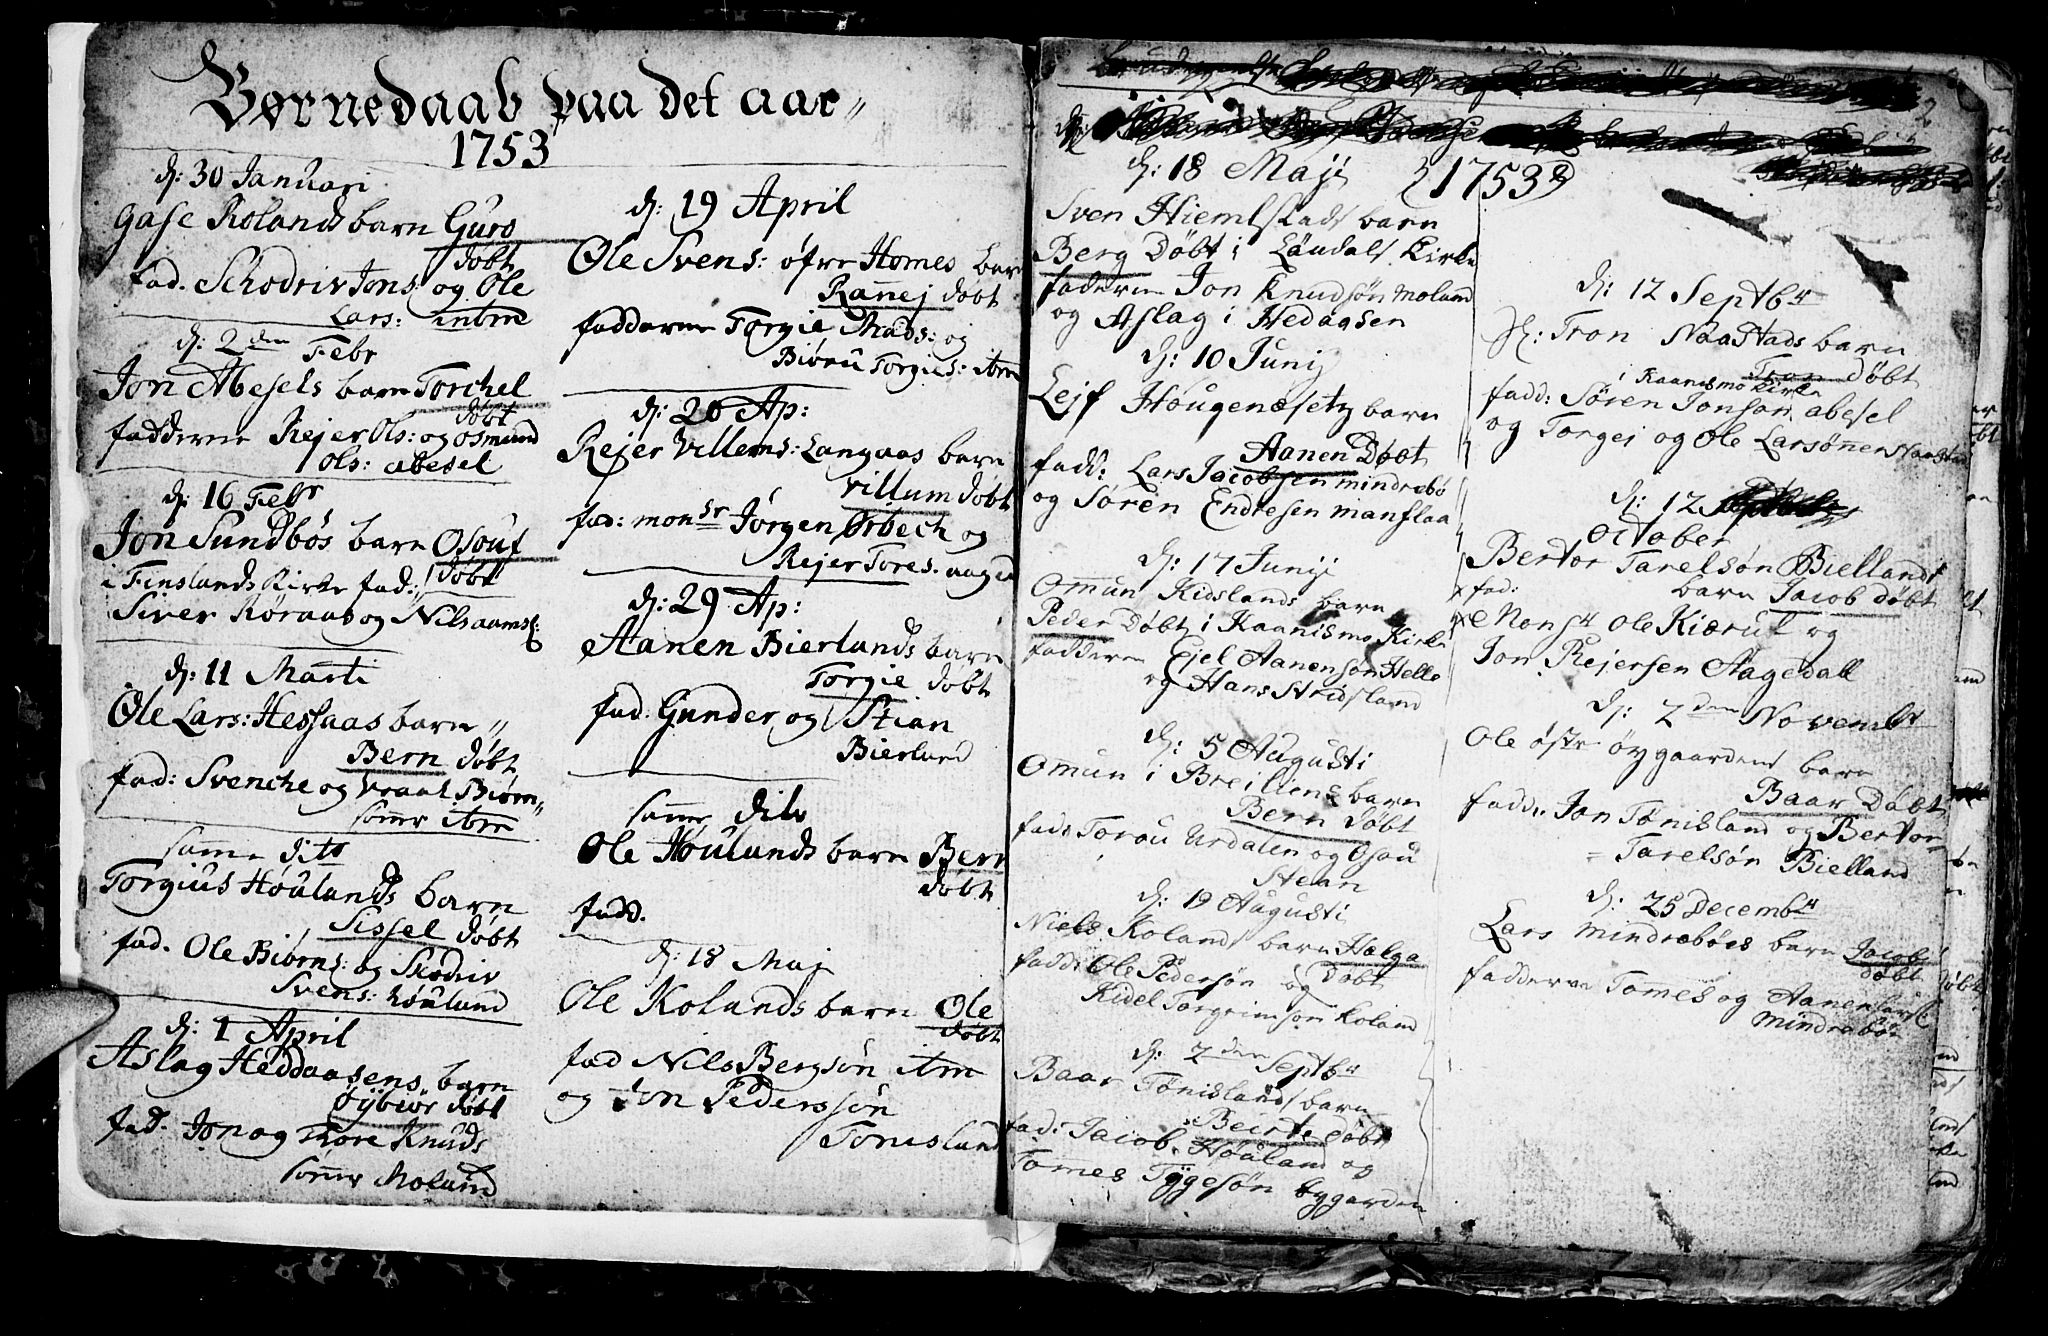 Børnedaab paa det aar„
1753
d: 30 Januari
Gase Rolands barn Guro
døbt
fad. Schodriv Jons: og Ole
Lars: intrne
d: 2den Febr
Jon Abesels barn Torchel
døbt
fadderne Rejer Ols: og Osmund
Ols: abesel
d: 16 Febr
Jon Sundbøs barn Osouf
døbt
i Finslands Kirke fad:
Siver Røraas og Nils aamsl:
d: 11 Marti
Ole Lars: Hessaas barn„
Bern døbt
fad: Svenche og Vraal Biørn„
sønner ibm
samme dito
Torgius Høulands barn
Sissel døbt
fad. Ole Biørns: og Skodriv
Svens: høuland
d: 1 April
Aslag Heddaasens barn
Gijbiør døbt
fad. Jon og Thore Knuds
sønner Moland
d: 19 April
Ole Svens: øfre Homes barn
Rannej døbt
fadderne Torgie Mads: og
Biøru Torgius: ibm
d: 20 Ap:
Rejer Villems: Langaas barn
Villum døbt
fad: monsr Jørgen Orbech og
Rejer Tores. aaged
d: 29 Ap:
Aanen Bierlands barn
Torgie døbt
fad: Gunder og Stian
Bierland
samme dito
Ole Høulands barn Bern
døbt
fadd.
d: 18 Maj
Ole Rolands barn Ole
døbt
fad Nils Bergsøn ibm
og Jon Pederssøn
Tønisland
d: 18 Maji 1753
Sven Hiemlstads barn
Berg Døbt i Løudals Kirke
fadderne Jon Knudsøn Moland
og Aslag i Hedagsen
d: 10 Junij
Lejf Hougensetz barn
Aanen Døbt
fadd: Lars Jacobsen mindrebø
og Søren Endresen manflaa
d: 17 Junij
Omun Kidslands barn
Peder Døbt i Kaanismo Kirke
fadderne Ejel Aanensøn Helle
og Hans Stridsland
d: 5 Augusti
Omun i Breiliens barn
Bern døbt
fadd Torou Urdalen og Osou
Stean
d: 19 Augusti
Niels Rolands barn Hælga
døbt
fadd: Ole Pedersøn og
Kidel Torgrimsøn Roland
d: 2den Septbr
Baar Tønislands barn
Beirte døbt
fad: Jacob Høuland og
Tommes Tygesøn bygarden
d: 12 Septbr
Sl: Tron Naastads barn
Tron døbt
i Kaanismo Kirke
fadd: Søren Jonsøn abesel
og Torgej og Ole Larsønner Naastad
d: 12
October
Bertor Tarelsøn Biellands
barn Jacob døbt
fad:
Monsr Ole Kiæruf og
Jon Rejersen Aagedall
d: 2den Novembr
Ole østre øygaardens barn
Baar Døbt
fadd: Jon Tønisland og Bertor
= Tarelsøn Bielland
d: 25 Decembr
Lars Mindrebøes barn Jacob
døbt
fadderne Tomes og Aanen Larss:
Mindrebø